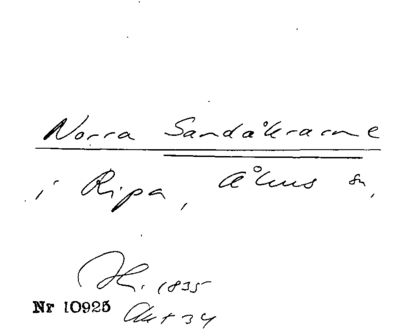 Norra Sandåkrarne
i Ripa, Åhus sn,
1835
Nr 10925 Akt 34